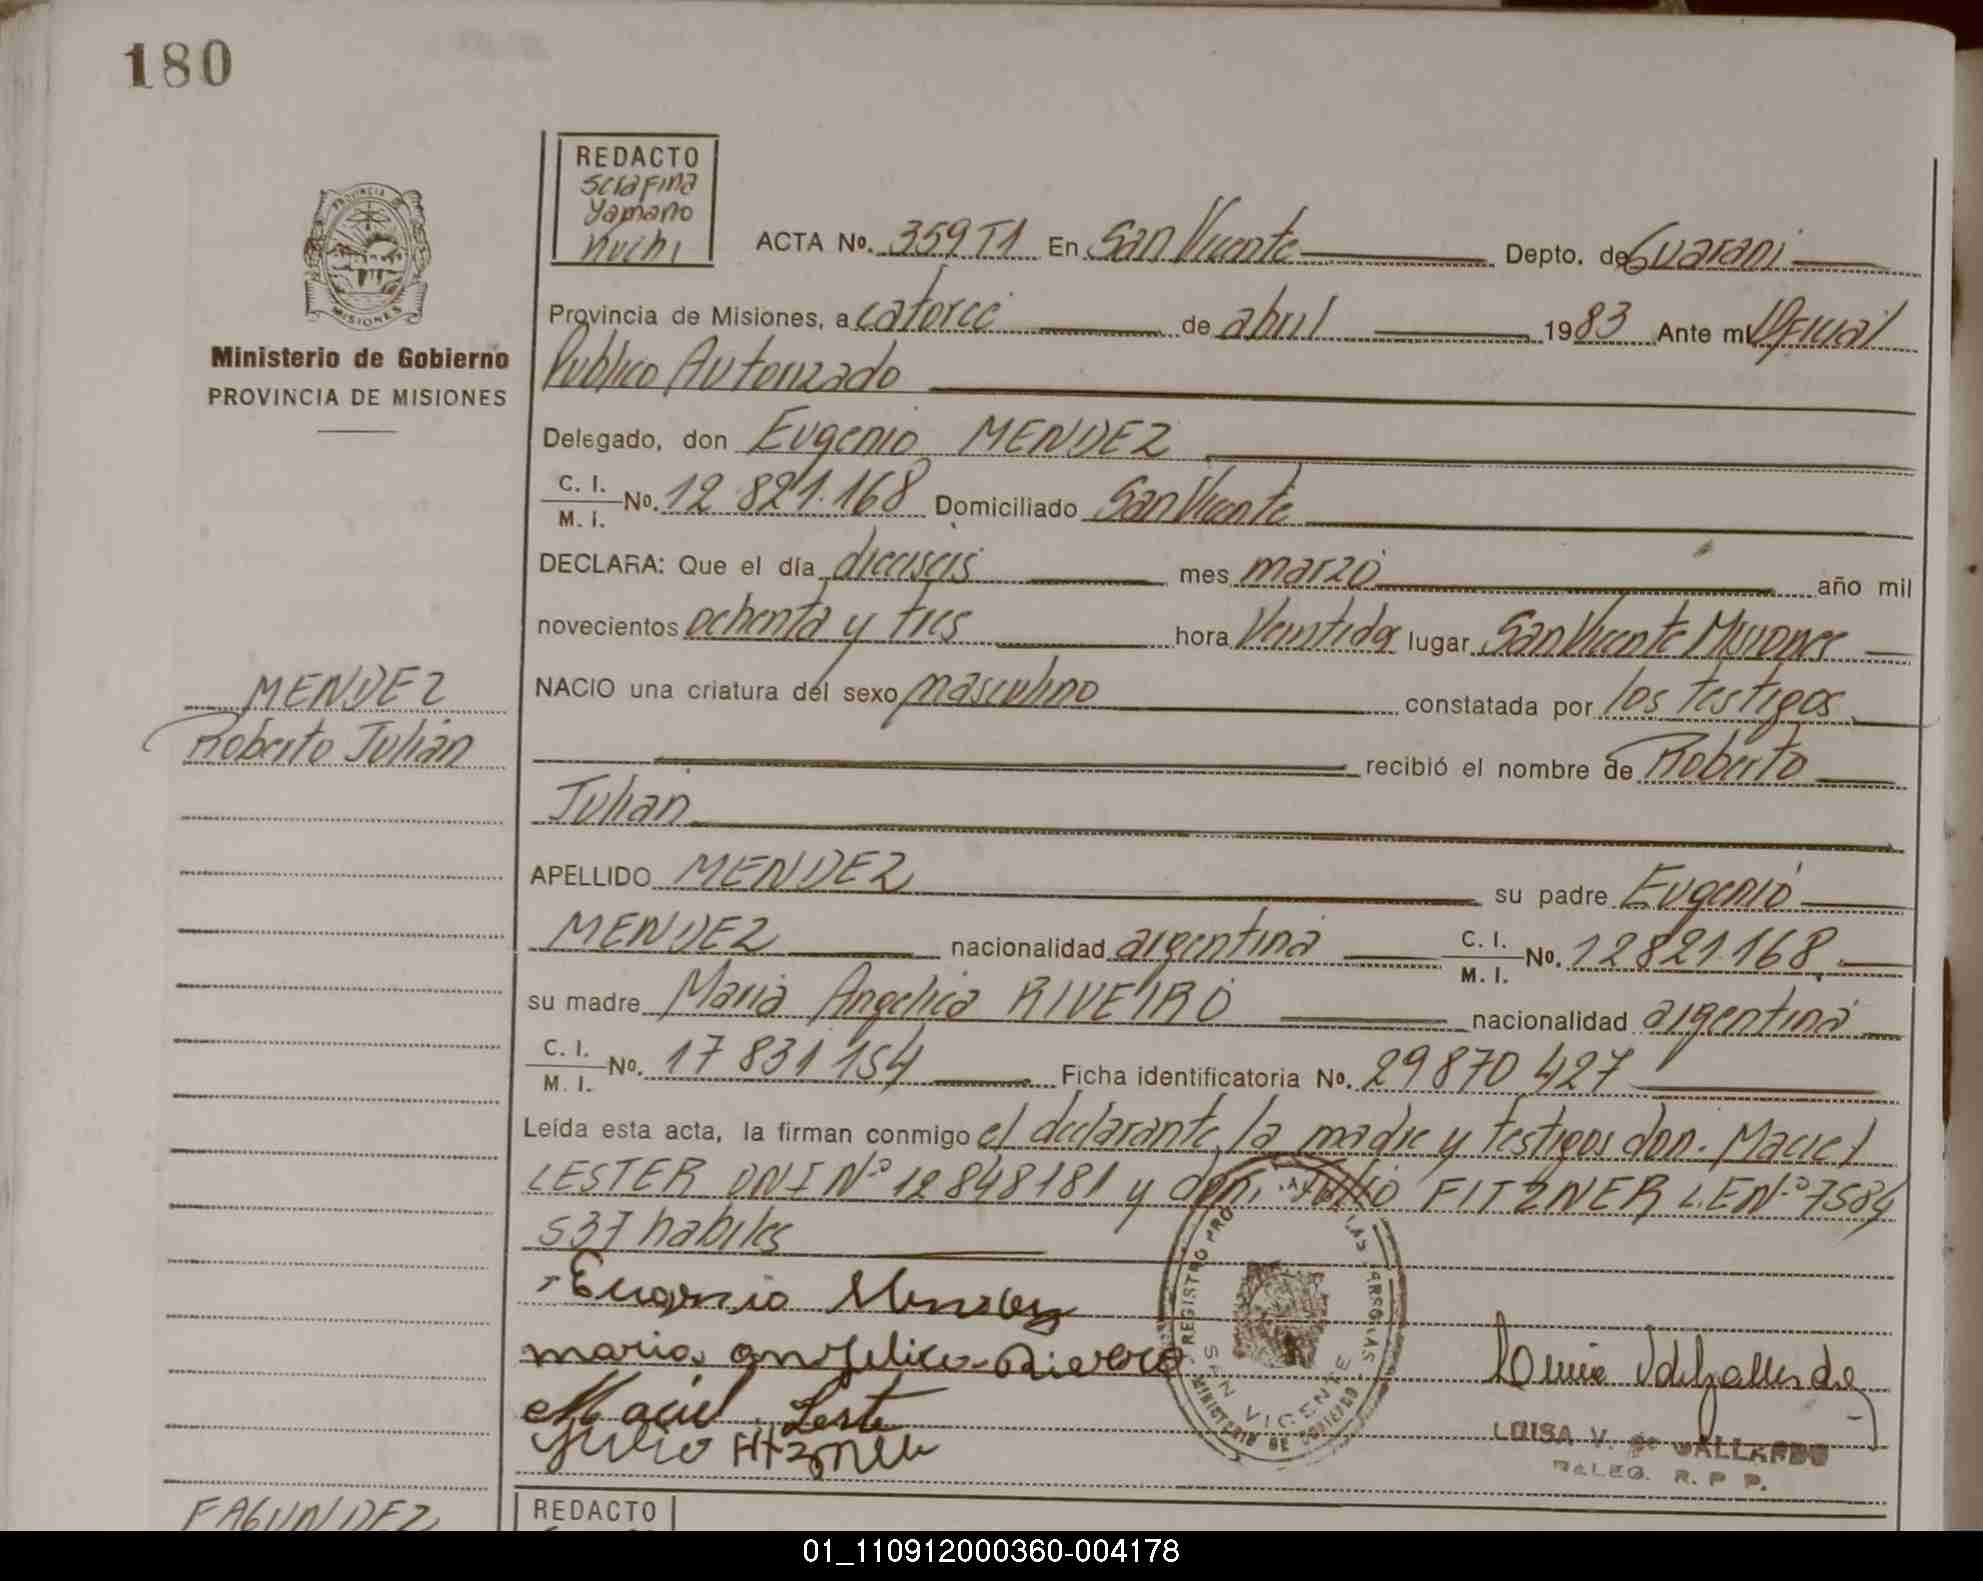 180
REDACTO
Serafina
Yamano
Nuchi
PROVINCIA
MISIONES
Ministerio de Gobierno
PROVINCIA DE MISIONES
ACTA No. 359 T1 En San Vicente Depto. de Guarani
Provincia de Misiones, a catorce de abril 1983 Ante mi Oficial
Publico Autorizado
Delegado, don Eugenio MENDEZ
C. I. / M. I. No. 12 821.168 Domiciliado San Vicente
DECLARA: Que el día dieciseis mes marzo año mil
novecientos ochenta y tres hora Veintidos lugar San Vicente Misiones
MENDEZ
Roberto Julian
NACIO una criatura del sexo masculino constatada por los testigos
recibió el nombre de Roberto
Julian
APELLIDO MENDEZ su padre Eugenio
MENDEZ nacionalidad argentina C. I. / M. I. No. 12821.168
su madre Maria Angelica RIVEIRO nacionalidad argentina
C. I. / M. I. No. 17 831 154 Ficha identificatoria No. 29870 427
Leída esta acta, la firman conmigo el declarante, la madre y testigos don. Maciel
LESTER DNI Nº 12848181 y don. Julio FITZNER L.E Nº 7584
537 habiles
Eugenio Mendez
maria angelica Rivero
Maciel Leste
Julio Fitzner
REGISTRO PRO LAS PERSONAS
SAN VICENTE
MINISTERIO DE GOBIERNO
LUISA V. de GALLARDO
DELEG. R. P P.
FAGUNDEZ
REDACTO
01_110912000360-004178